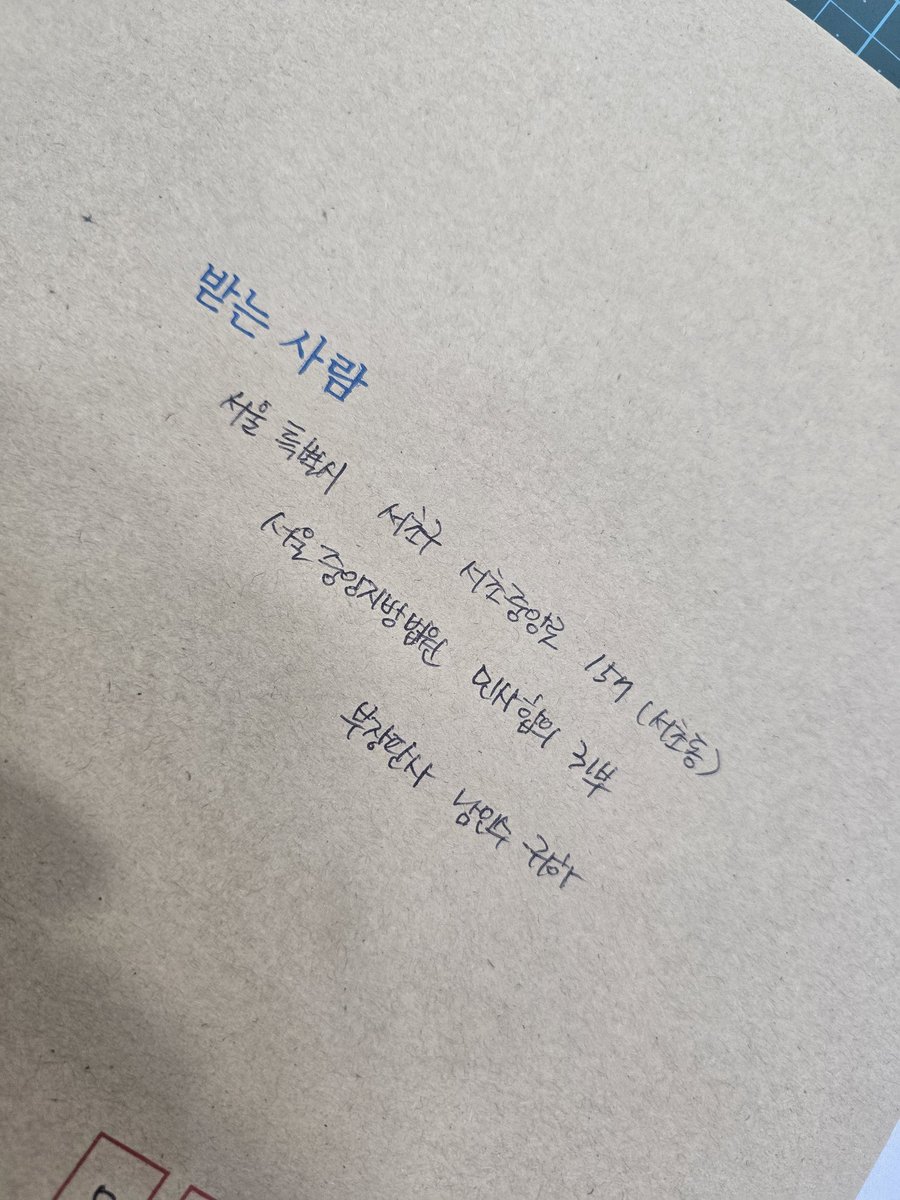 받는 사람
서울 특별시 서초구 서초중앙로 157 (서초동)
서울중앙지방법원 민사합의 21부
부장판사 남인수 귀하